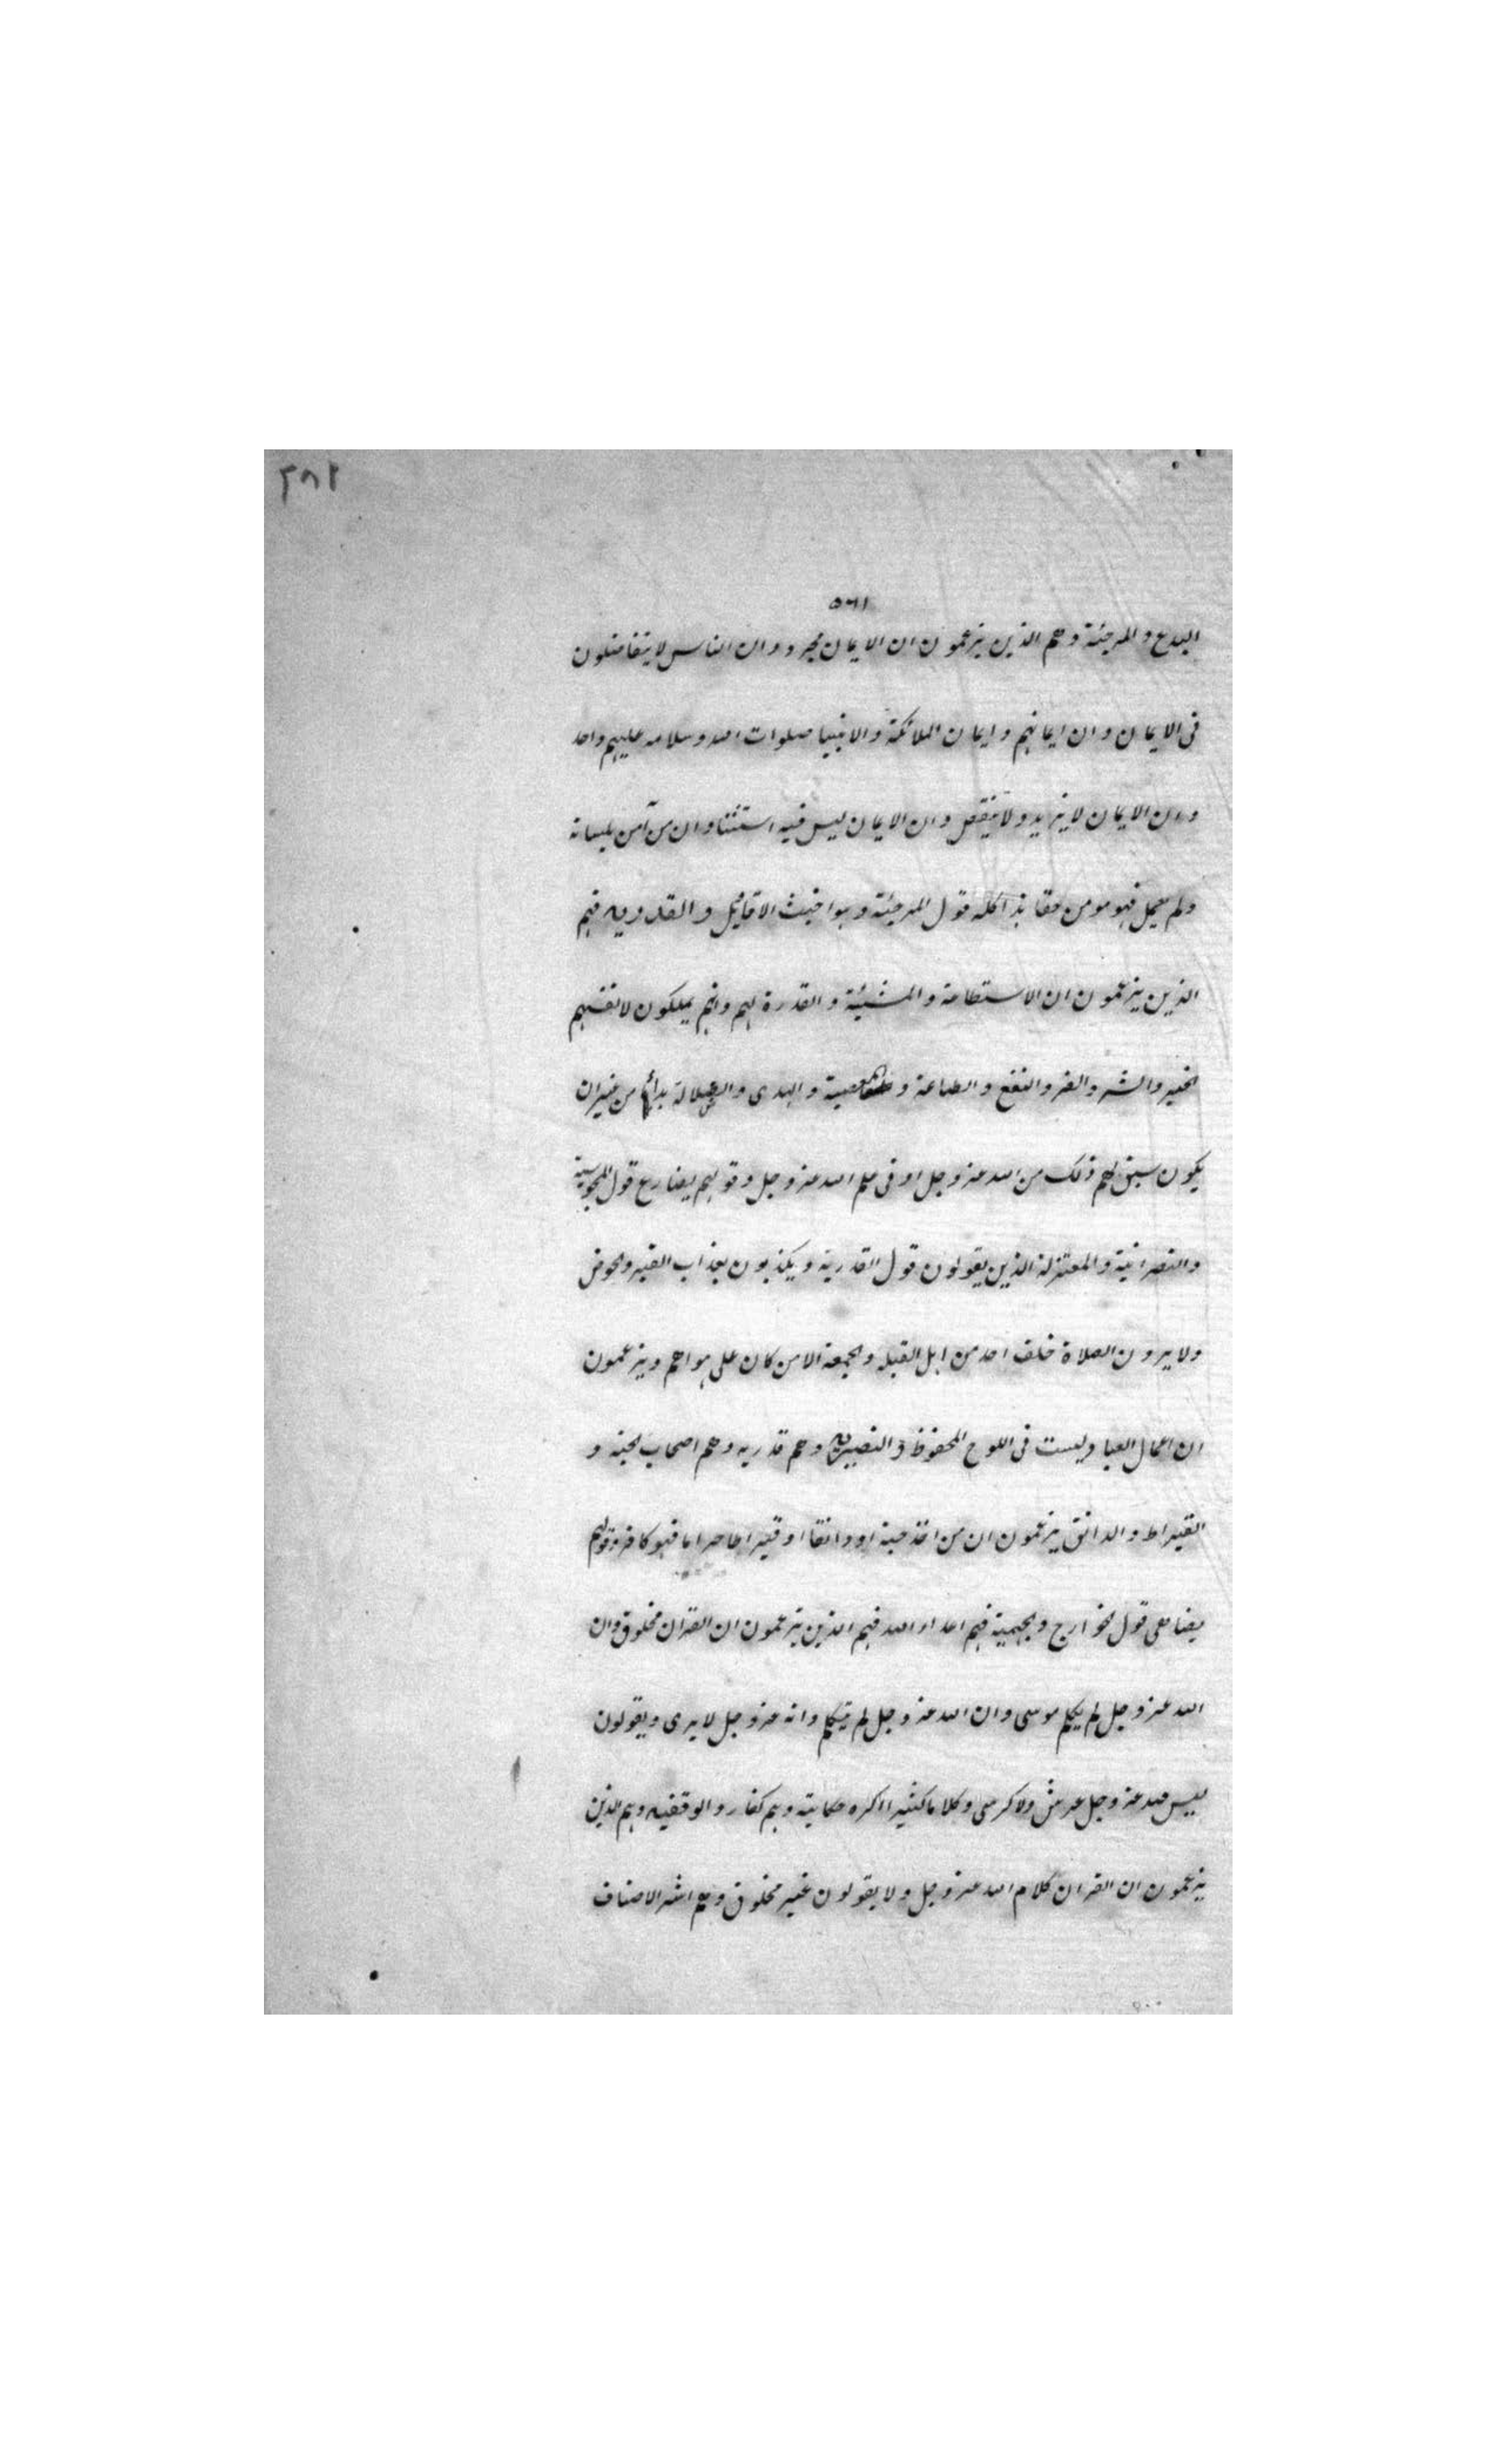 ٢٨١
٥٦١
البدع والمرجئة وهم الذين يزعمون ان الايمان مجرد وان الناس لا يتفاضلون
فى الايمان وان ايمانهم وايمان الملائكة والانبيا صلوات الله وسلامه عليهم واحد
وان الايمان لا يزيد ولا ينقص وان الايمان ليس فيه استثنا وان من آمن بلسانه
ولم يعمل فهو مومن حقا هذا كله قول المرجئة وهو اخبث الاقاويل والقدريه فهم
الذين يزعمون ان الاستطاعة والمشيئة والقدرة لهم وانهم يملكون لانفسهم
الخير والشر والضر والنفع والطاعة والمعصية والهدى والضلالة بدأ من غير ان
يكون سبق لهم ذلك من الله عز وجل او فى علم الله عز وجل وقولهم يضارع قول المجوسية
والنصرانية والمعتزلة الذين يقولون قول القدرية ويكذبون بعذاب القبر والحوض
ولا يرون الصلاة خلف احد من اهل القبله والجمعة الا من كان على هواهم ويزعمون
ان اعمال العباد ليست فى اللوح المحفوظ والنصيريه وهم قدريه وهم اصحاب الحبة و
القيراط والدانق يزعمون ان من اخذ حبة او دانقا او قيراطا حراما فهو كافر وقولهم
يضاهى قول الخوارج والجهمية فهم اعداء الله فهم الذين يزعمون ان القران مخلوق وان
الله عز وجل لم يكلم موسى وان الله عز وجل لم يتكلم وانه عز وجل لا يرى ويقولون
ليس لله عز وجل عرش ولا كرسى وكلاما كثيرا اكره حكايته وهم كفار والوقفيه وهم الذين
يزعمون ان القران كلام الله عز وجل ولا يقولون غير مخلوق وهم اشر الاصناف